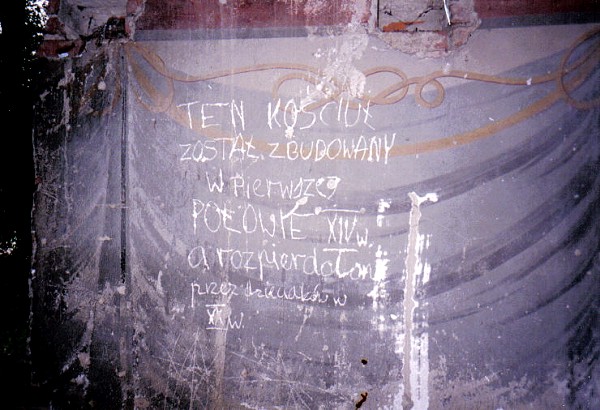 TETN KOŚCIUŁ
ZOSTAŁ ZBUDOWANY
W Pierwszej
POŁOWIE XIV w.
a rozpierdolon
przez dzieciaków w
XX w.